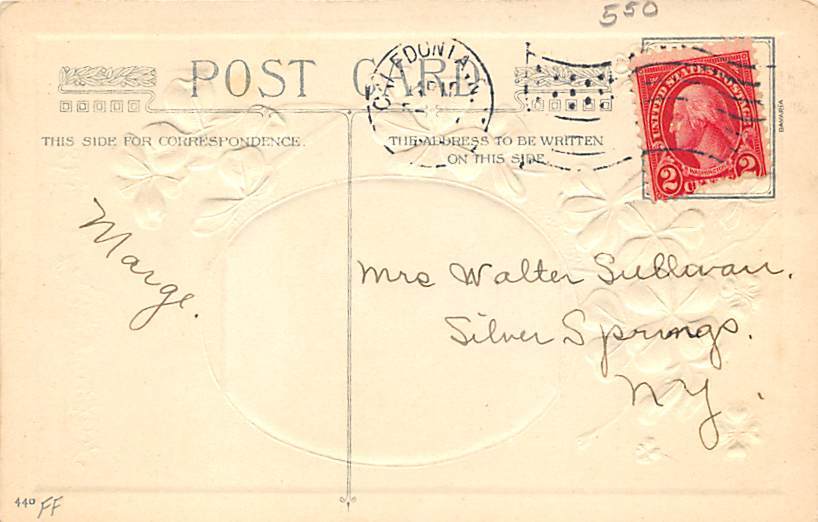 550
POST CARD
CALEDONIA, N.
THIS SIDE FOR CORRESPONDENCE.
THE ADDRESS TO BE WRITTEN
ON THIS SIDE
UNITED STATES POSTAGE
WASHINGTON
2 2
BAVARIA
Marge.
Mrs Walter Sullivan.
Silver Springs.
NY.
440 FF